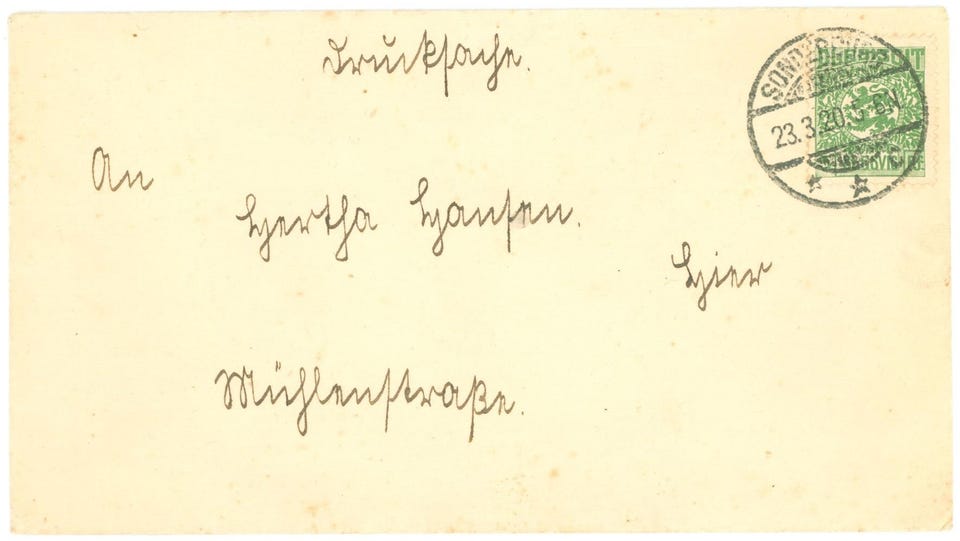 Drucksache.
SONDERBURG
23.3.20.5-6N
An
Hertha Hansen.
Hier
Mühlenstraße.